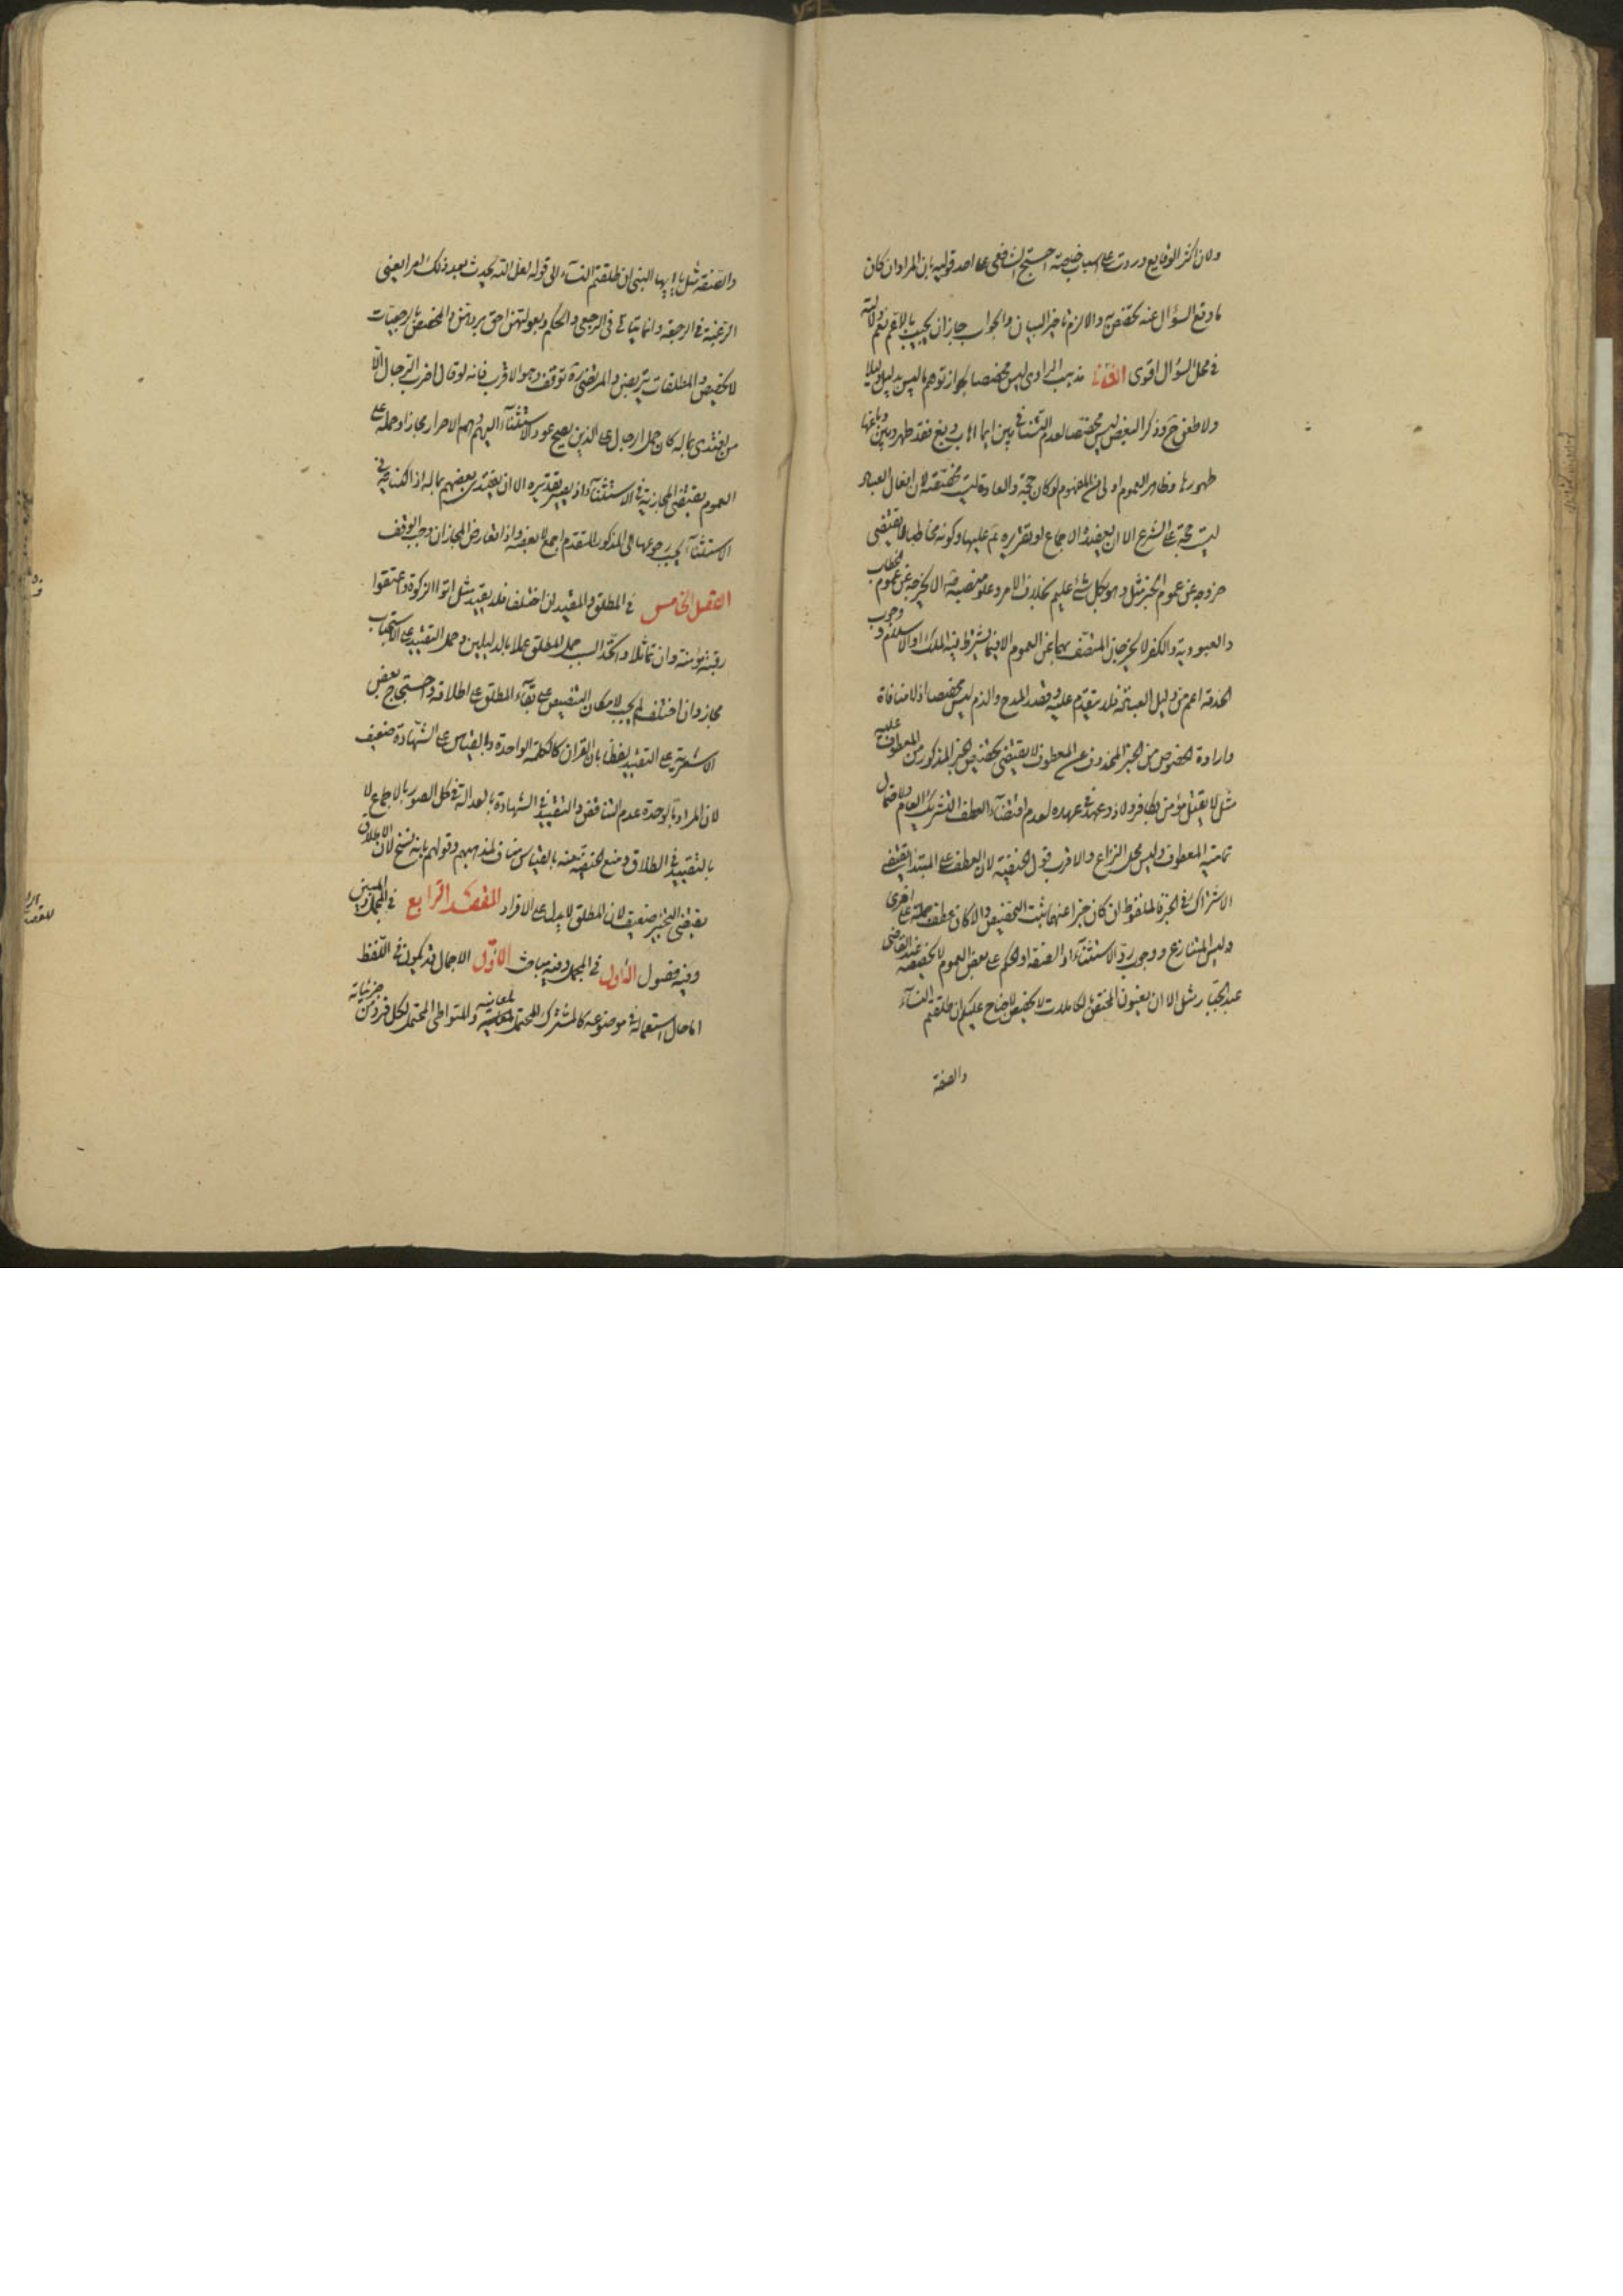 ولان اكثر الوقايع وردت على اسباب خاصة احتج الشافعي على احد قوليه بان المراد ان كان
ما وقع السؤال عنه تخصص به والا لزم تاخير البيان والجواب جاز ان يجيب بالاعم نعم دلالته
في محل السؤال اقوى الثاني مذهب الراوي ليس مخصصا لجواز توهم ما ليس بدليل دليلا
ولا طعن ح وذكر البعض ليس مخصصا لعدم التنافي بين ايما اهاب دبغ فقد طهر وبين دباغها
طهورها وظاهر العموم اولى من المفهوم لو كان حجة والعادة ليست مخصصة لان افعال العباد
ليست حجة على الشرع الا ان يعضده الاجماع او تقريره عم عليها وكونه مخاطبا لا يقتضي
خروجه عن عموم الخبر مثل وهو بكل شئ عليم بخلاف الامر وعلو منصبه عم الا يخرجه عن عموم الخطاب
والعبودية والكفر لا يخرجان المتصف بهما عن العموم الا فيما يشترط فيه الملك او الاسلام ووجوب
الخدمة اعم من دليل العبادة فلا يتقدم عليه وقصد المدح والذم ليس مخصصا اذ لا منافاة
وارادة الخصوص من الخبر المحذوف عن المعطوف لا يقتضي تخصيص الخبر المذكور من المعطوف عليه
مثل لا يقتل مؤمن بكافر ولا ذو عهد في عهده لعدم اقتضاء العطف التشريك العام ولاحتمال
تمامية المعطوف وليس محل النزاع والاقرب قول الحنفية لان العطف على المبتدا يقتضي
الاشتراك في الخبر فالملفوظ ان كان خبرا عنهما ثبت التخصيص والا كان عطف جملة على اخرى
وليس المتنازع ووجوب رد الاستثناء او الصفة او الحكم على بعض العموم لا يخصصه عند القاضي
عبد الجبار مثل الا ان يعفون المختص بالكاملات لا يخصص لا جناح عليكم ان طلقتم النساء
والصفة
والصفة مثل يا ايها النبي اذا طلقتم النساء الى قوله لعل الله يحدث بعد ذلك امرا يعني
الرغبة في الرجعة وانما يتاتى في الرجعي والحكم وبعولتهن احق بردهن والمختص بالرجعيات
لا يخصص والمطلقات يتربصن والمرتضى ره توقف وهو الاقرب فانه لو قال اضرب الرجال الا
من يفتدي بماله كان حمل الرجال على الذين يصح عود الاستثناء اليهم وهم الاحرار مجازا وحمله على
العموم يقتضي المجازية في الاستثناء اذ يصير تقديره الا ان يفتدي بعضهم بماله اذ الكناية في
الاستثناء يجب رجوعها الى المذكور المتقدم اجمع لا بعضه واذا تعارض المجازان وجب الوقف
الفصل الخامس في المطلق والمقيد ان اختلفا فلا تقييد مثل اتوا الزكوة واعتقوا
رقبة مؤمنة وان تماثلا واتحد السبب حمل المطلق عملا بالدليلين وحمل التقييد على الاستحباب
مجاز وان اختلف لم يجب لامكان التنصيص على بقاء المطلق على اطلاقه واحتجاج بعض
الاشعرية على التقييد لفظا بان القران كالكلمة الواحدة وبالقياس على الشهادة ضعيف
لان المراد بالوحدة عدم التناقض والتقييد في الشهادة بالعدالة في كل الصور بالاجماع لا
بالتقييد في الطلاق ومنع الحنفية منه بالقياس مناف لمذهبهم وقولهم بانه نسخ لان الاطلاق
يقتضي التخيير ضعيف لان المطلق لا يدل على الافراد المقصد الرابع في المجمل والمبين
وفيه فصول الاول في المجمل وفيه مباحث الاول الاجمال قد يكون في اللفظ
اما حال استعماله في موضوعه كالمشترك المحتمل لمعانيه والمتواطي المحتمل لكل فرد من جزئياته